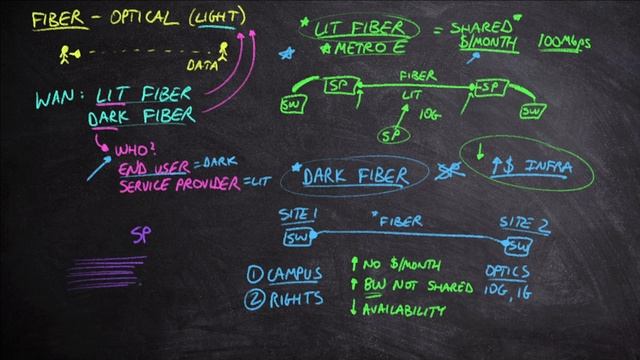 FIBER - OPTICAL (LIGHT)
DATA
WAN: LIT FIBER
DARK FIBER
WHO?
END USER = DARK
SERVICE PROVIDER = LIT
SP
* LIT FIBER = SHARED *
* METRO E $/MONTH 100Mbps
*
FIBER
SP SP
LIT
SW SW
10G
SP
* DARK FIBER SP ↑ $ INFRA
↓
SITE 1 * FIBER SITE 2
SW SW
① CAMPUS ↑ NO $/MONTH OPTICS
② RIGHTS ↑ BW NOT SHARED 10G, 1G
↓ AVAILABILITY